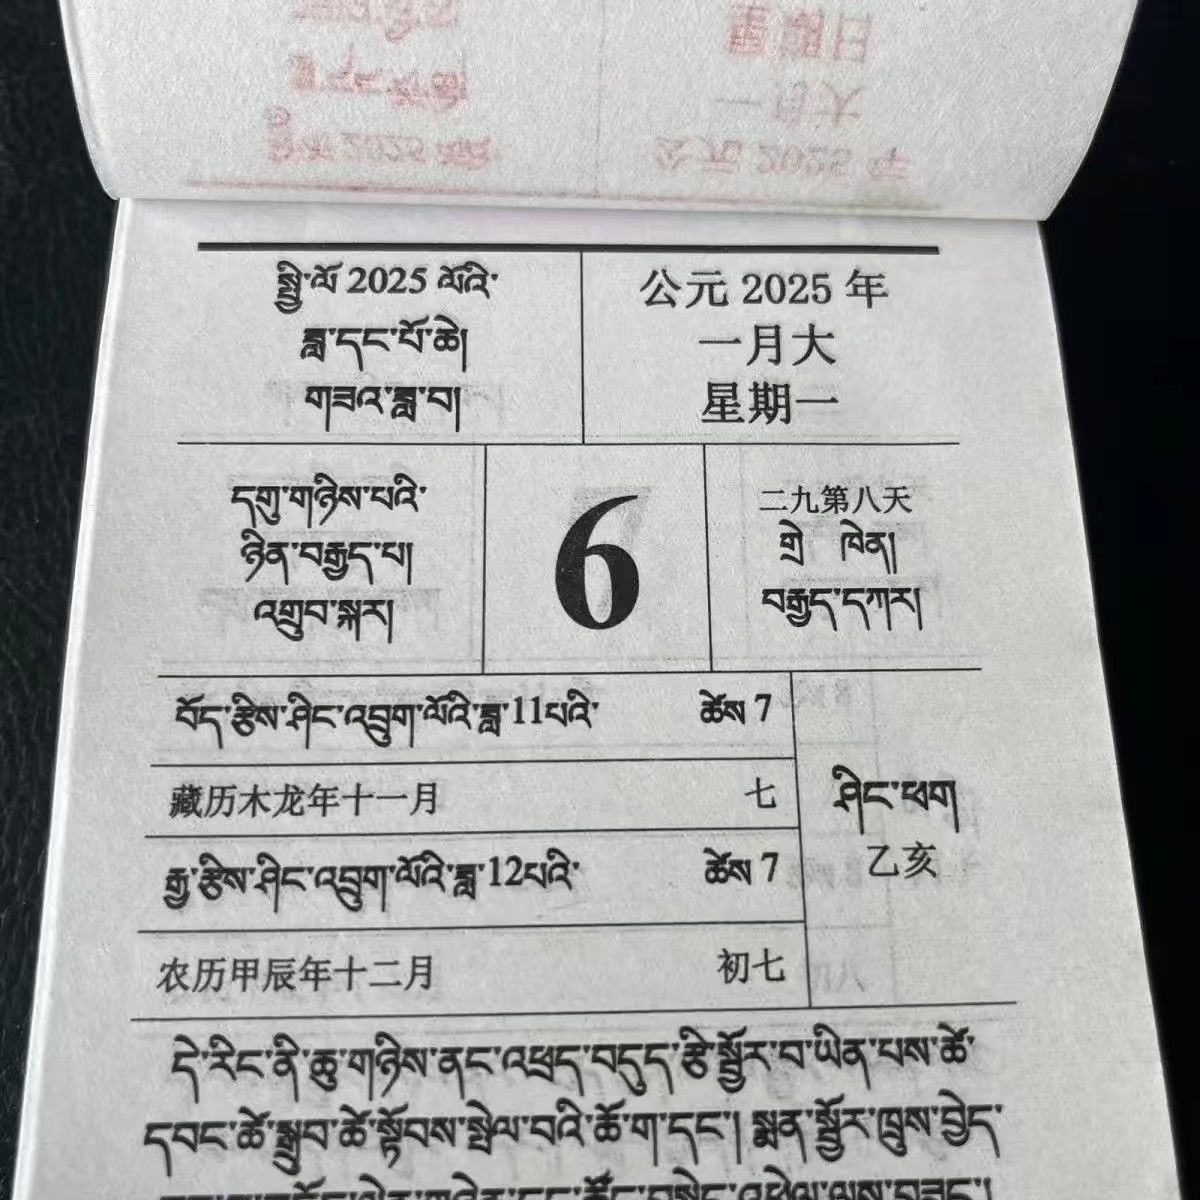 སྤྱི་ལོ 2025 ལོའི་
ཟླ་དང་པོ་ཆེ།
གཟའ་ཟླ་བ།
公元 2025 年
一月大
星期一
དགུ་གཉིས་པའི་
ཉིན་བརྒྱད་པ།
འགྲུབ་སྐར།
6
二九第八天
གྲེ ཁེན།
བརྒྱད་དཀར།
བོད་རྩིས་ཤིང་འབྲུག་ལོའི་ཟླ་11པའི་ ཚེས 7
藏历木龙年十一月 七
རྒྱ་རྩིས་ཤིང་འབྲུག་ལོའི་ཟླ་12པའི་ ཚེས 7
农历甲辰年十二月 初七
ཤིང་ཕག
乙亥
དེ་རིང་ནི་ཆུ་གཉིས་ནང་འཕྲད་བདུད་རྩི་སྦྱོར་བ་ཡིན་པས་ཚེ་
དབང་ཚེ་སྒྲུབ་ཚེ་སྟོབས་སྤེལ་བའི་ཆོ་ག་དང་། སྨན་སྦྱོར་ཁྲུས་བྱེད་